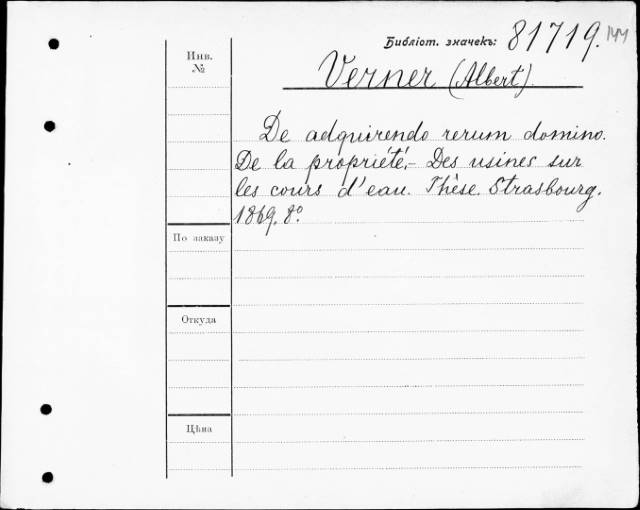 Библіот. значекъ: 81719. 144
Инв.
№
Verner (Albert).
De adquirendo rerum domino.
De la propriété,- Des usines sur
les cours d'eau. Thèse. Strasbourg.
1869. 8º
По заказу
Откуда
Цѣна